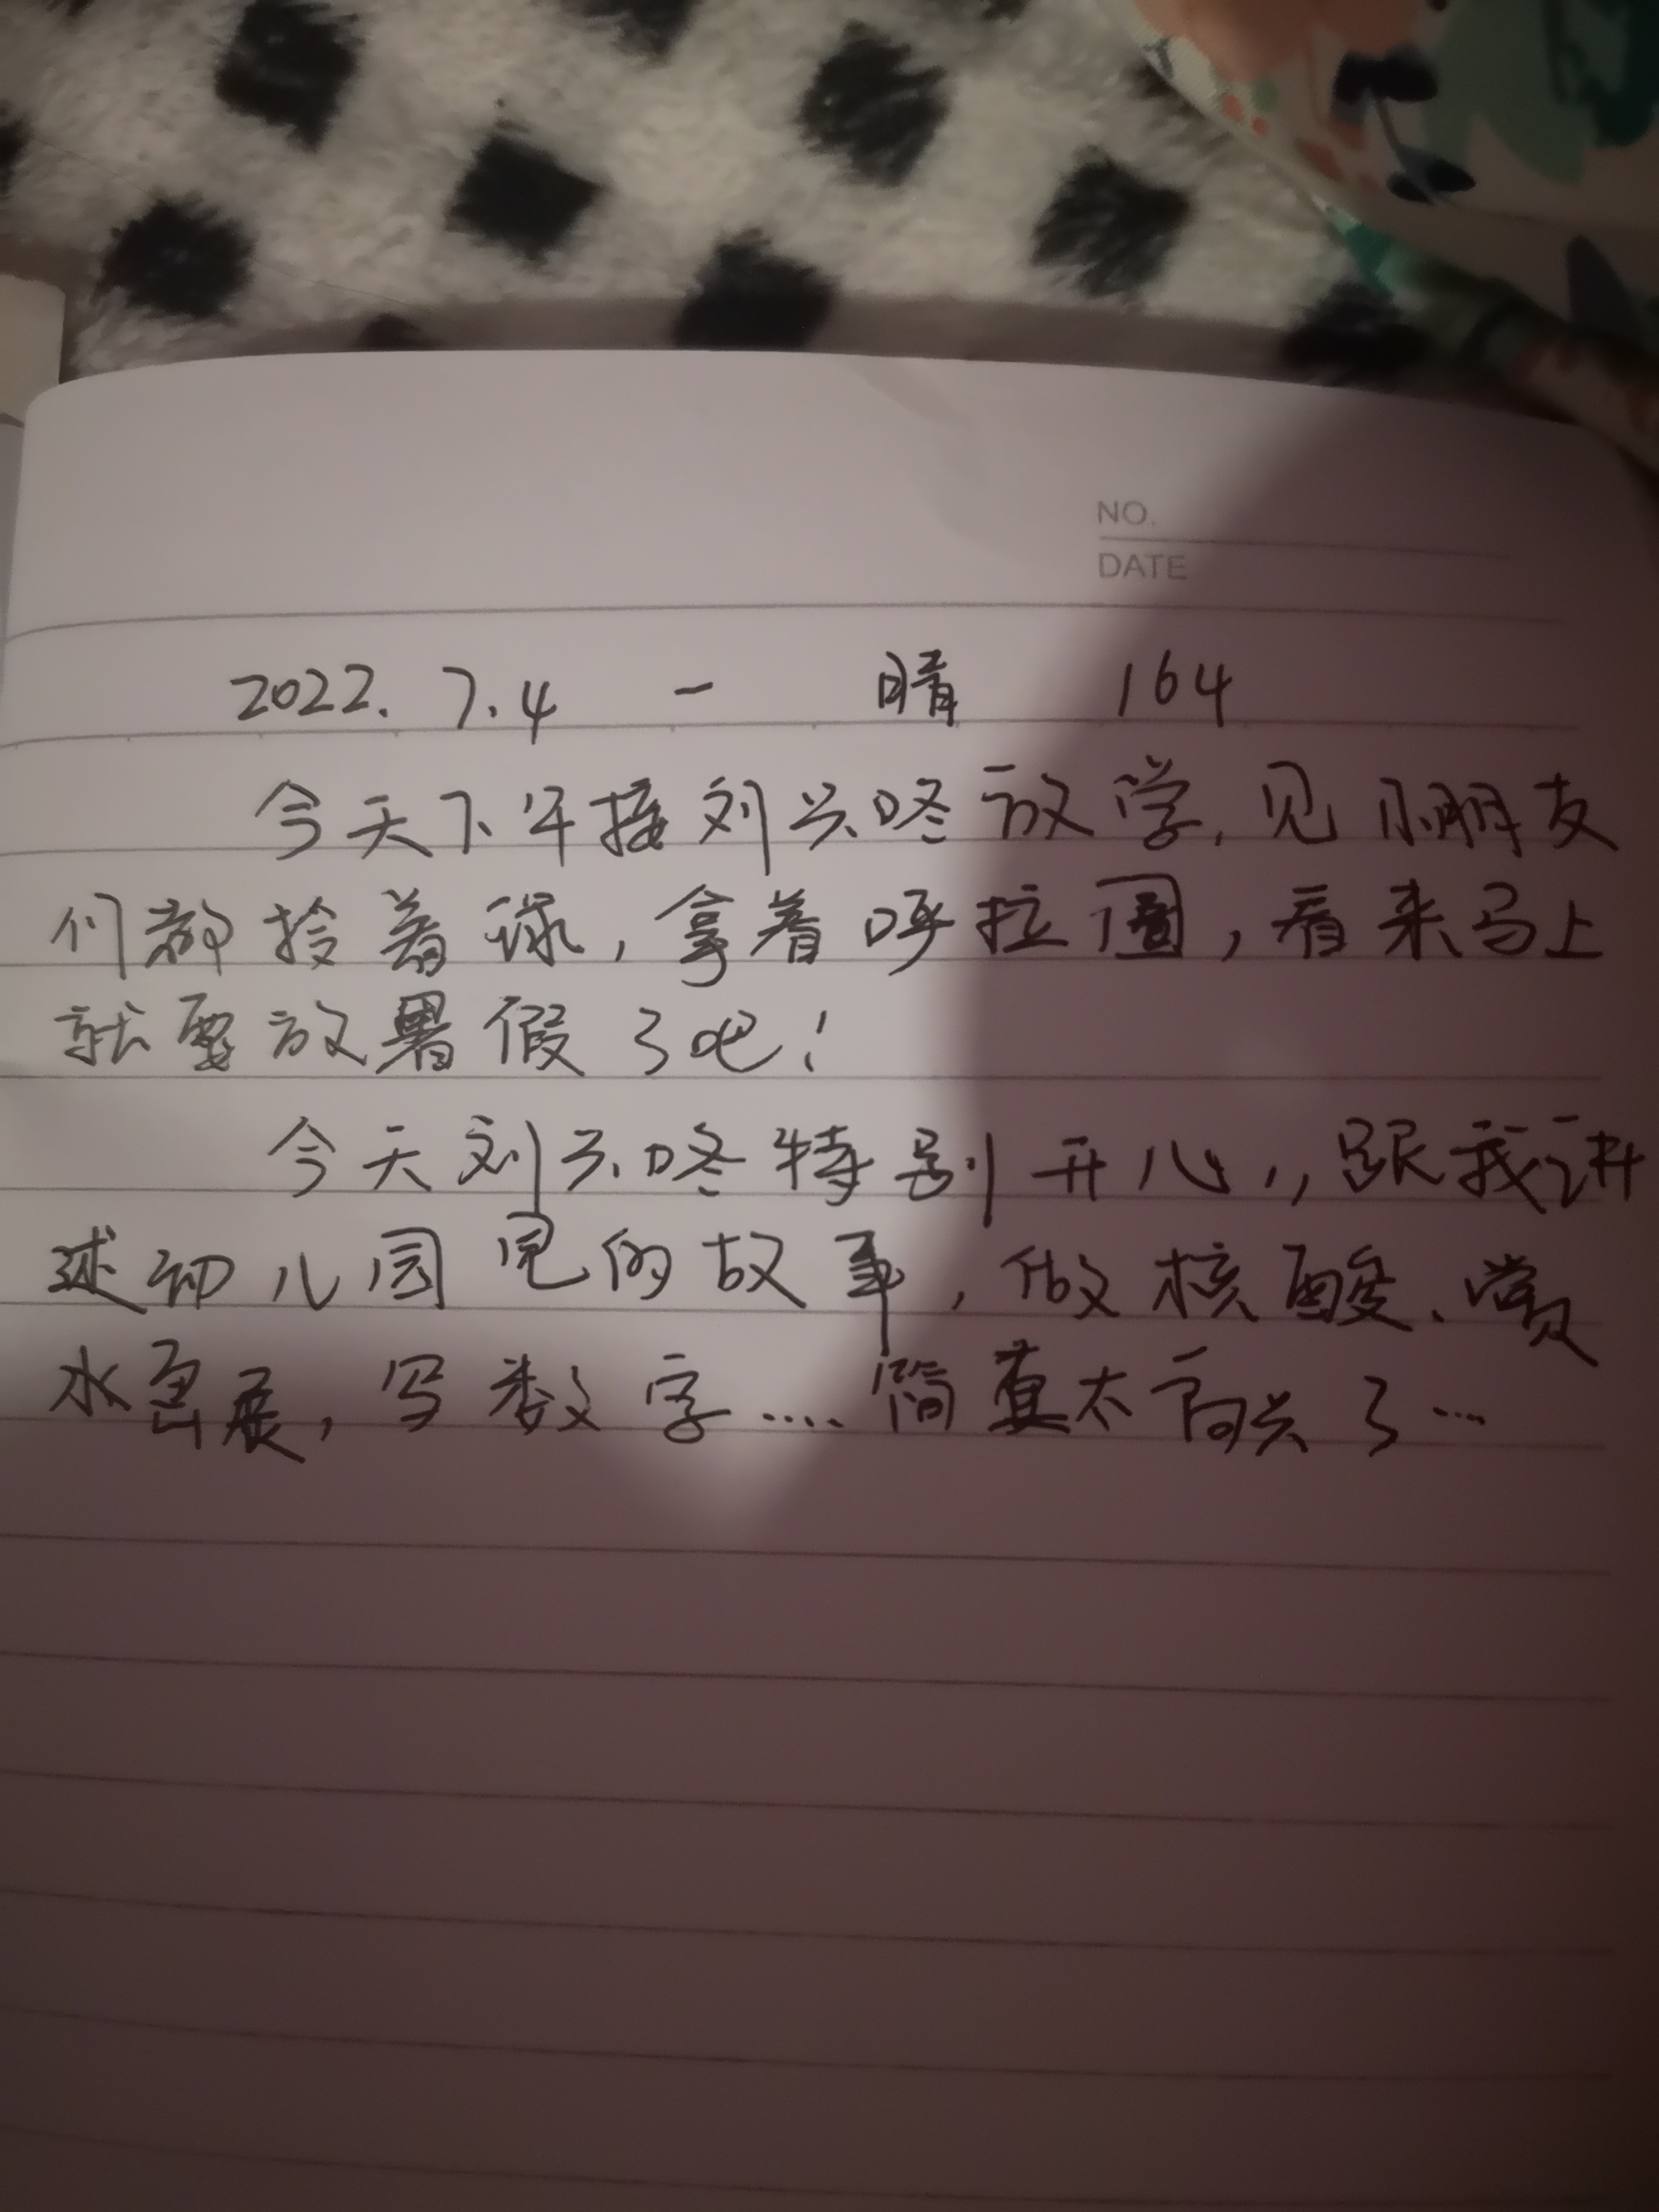 NO.
DATE
2022.7.4 一 晴 164
今天下午接刘兴咚放学,见小朋友
们都拎着球,拿着呼拉圈,看来马上
就要放暑假了吧!
今天刘兴咚特别开心,,跟我讲
述幼儿园里的故事,做核酸、赏
水画展,写数字....简直太高兴了...